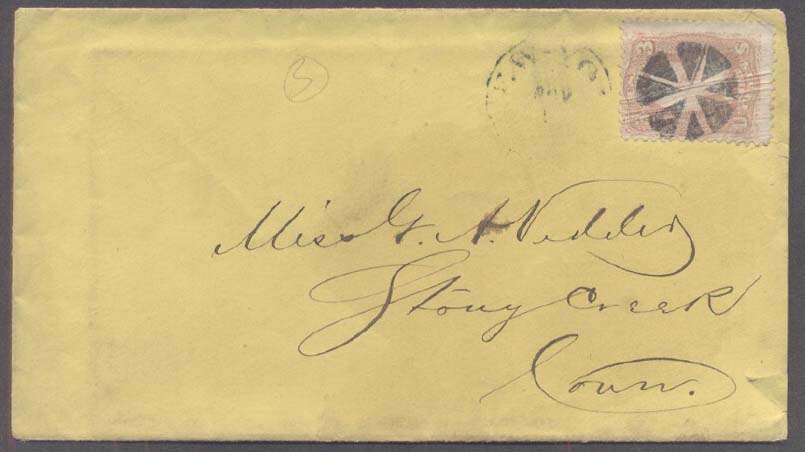 5
Miss G. A. Vedder
Stony Creek
Conn.